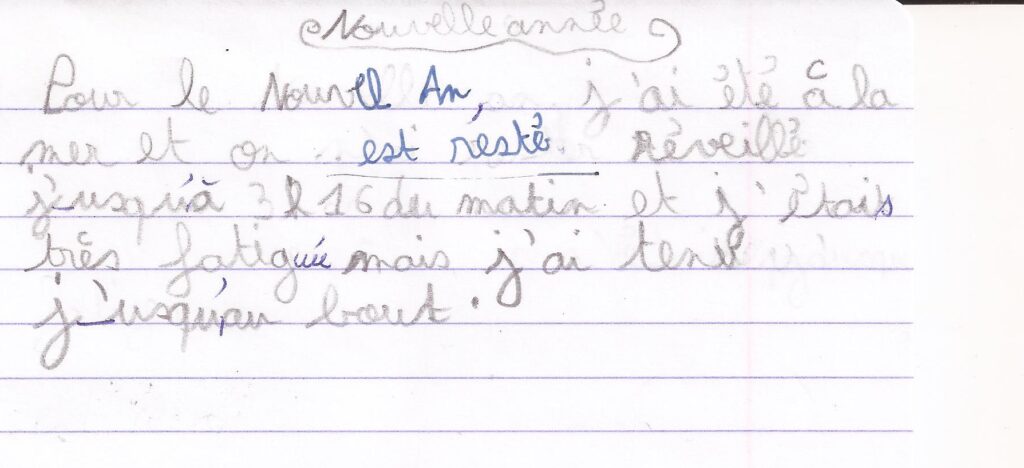 Nouvelle année
Pour le Nouvel An, j'ai été à la
mer et on est resté réveillé
j'usqu'à 3h16 du matin et j'étais
très fatiguée mais j'ai tenu
j'usqu'au bout.